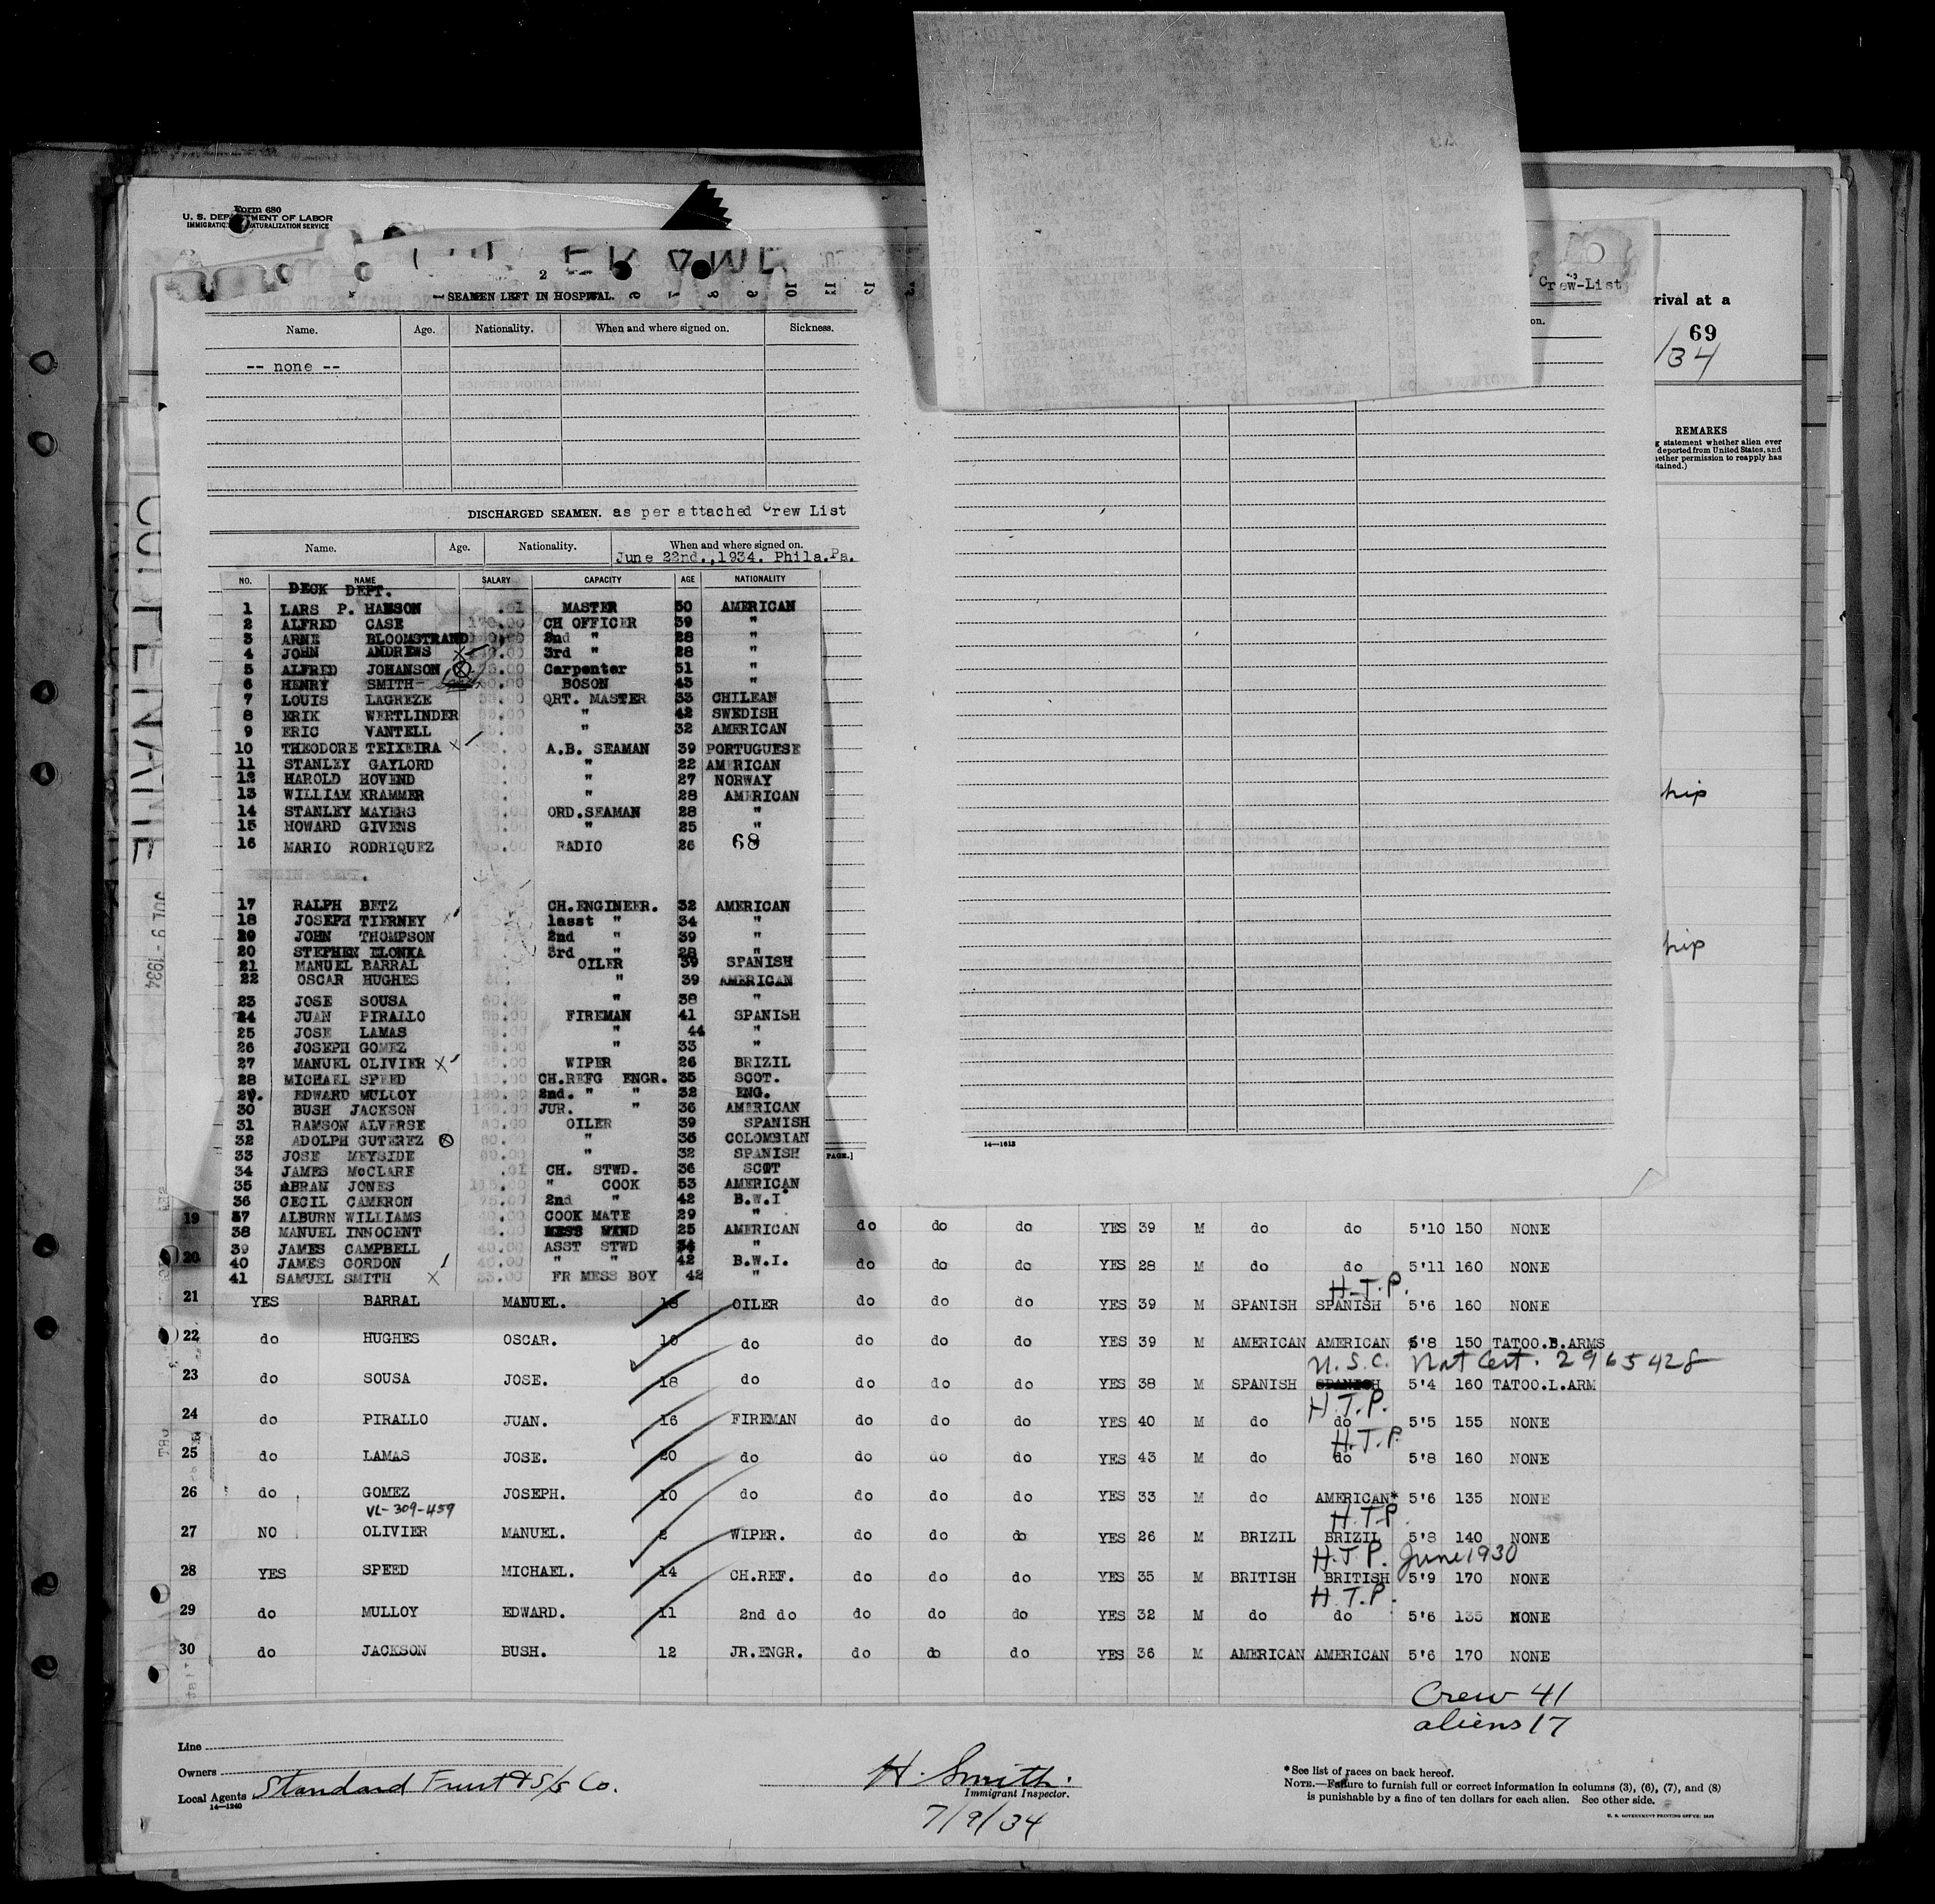 Form 680
U. S. DEPARTMENT OF LABOR
NATURALIZATION SERVICE
2
SEAMEN LEFT IN HOSPITAL.
Name. Age. Nationality. When and where signed on. Sickness.
-- none --
DISCHARGED SEAMEN. as per attached Crew List
Name. Age. Nationality. When and where signed on.
June 22nd.,1934. Phila.Pa.
NO. NAME SALARY CAPACITY AGE NATIONALITY
DECK DEPT.
1 LARS P. HANSON .01 MASTER 50 AMERICAN
2 ALFRED CASE 170.00 CH OFFICER 39 "
3 ARNE BLOOMSTRAND 2nd " 28 "
4 JOHN ANDREWS X 3rd " 28 "
5 ALFRED JOHANSON Carpenter 51 "
6 HENRY SMITH BOSON 43 "
7 LOUIS LAGREZE QRT. MASTER 33 CHILEAN
8 ERIK WERTLINDER " 42 SWEDISH
9 ERIC VANTELL " 32 AMERICAN
10 THEODORE TEIXEIRA X A.B. SEAMAN 39 PORTUGUESE
11 STANLEY GAYLORD " 22 AMERICAN
12 HAROLD HOVEND " 27 NORWAY
13 WILLIAM KRAMMER " 28 AMERICAN
14 STANLEY MAYERS ORD.SEAMAN 28 "
15 HOWARD GIVENS " 25 "
16 MARIO RODRIQUEZ RADIO 26 "
68
17 RALPH BETZ CH.ENGINEER. 32 AMERICAN
18 JOSEPH TIERNEY X 1asst " 34 "
29 JOHN THOMPSON 2nd " 39 "
20 STEPHEN ELONKA 3rd " 28 "
21 MANUEL BARRAL OILER 39 SPANISH
22 OSCAR HUGHES " 39 AMERICAN
23 JOSE SOUSA 60.00 " 38 "
24 JUAN PIRALLO FIREMAN 41 SPANISH
25 JOSE LAMAS " 44 "
26 JOSEPH GOMEZ " 33 "
27 MANUEL OLIVIER X WIPER 26 BRIZIL
28 MICHAEL SPEED CH.REFG ENGR. 35 SCOT.
29. EDWARD MULLOY 2nd. " " 32 ENG.
30 BUSH JACKSON JUR. " 36 AMERICAN
31 RAMSON ALVERSE OILER 39 SPANISH
32 ADOLPH GUTEREZ " 36 COLOMBIAN
33 JOSE MEYSIDE " 32 SPANISH
34 JAMES McCLARE .01 CH. STWD. 36 SCOT
35 ABRAM JONES " COOK 53 AMERICAN
36 CECIL CAMERON 75.00 2nd " 42 B.W.I
37 ALBURN WILLIAMS COOK MATE 29 "
38 MANUEL INNOCENT MESS 25 AMERICAN
39 JAMES CAMPBELL ASST STWD 34 "
40 JAMES GORDON " " 42 B.W.I.
41 SAMUEL SMITH X FR MESS BOY 42 "
JUL 9 - 1934
Crew-List
14—1612
rival at a
69
/34
REMARKS
g statement whether alien ever
deported from United States, and
hether permission to reapply has
tained.)
hip
hip
PAGE.]
19 do do do YES 39 M do do 5'10 150 NONE
20 do do do YES 28 M do do 5'11 160 NONE
H.T.P.
21 YES BARRAL MANUEL. 18 OILER do do do YES 39 M SPANISH SPANISH 5'6 160 NONE
22 do HUGHES OSCAR. 10 do do do do YES 39 M AMERICAN AMERICAN 5'8 150 TATOO.B.ARMS
U.S.C. Nat Cert. 2965428
23 do SOUSA JOSE. 18 do do do do YES 38 M SPANISH SPANISH 5'4 160 TATOO.L.ARM
H.T.P.
24 do PIRALLO JUAN. 16 FIREMAN do do do YES 40 M do do 5'5 155 NONE
H.T.P.
25 do LAMAS JOSE. 20 do do do do YES 43 M do do 5'8 160 NONE
26 do GOMEZ JOSEPH. 10 do do do do YES 33 M do AMERICAN* 5'6 135 NONE
VL-309-459 H.T.P.
27 NO OLIVIER MANUEL. 2 WIPER. do do do YES 26 M BRIZIL BRIZIL 5'8 140 NONE
H.T.P. June 1930
28 YES SPEED MICHAEL. 14 CH.REF. do do do YES 35 M BRITISH BRITISH 5'9 170 NONE
H.T.P.
29 do MULLOY EDWARD. 11 2nd do do do do YES 32 M do do 5'6 135 NONE
30 do JACKSON BUSH. 12 JR.ENGR. do do do YES 36 M AMERICAN AMERICAN 5'6 170 NONE
Crew 41
aliens 17
Line
Owners
Local Agents Standard Fruit & S/S Co.
14—1240
H. Smith.
Immigrant Inspector.
7/9/34
*See list of races on back hereof.
NOTE.—Failure to furnish full or correct information in columns (3), (6), (7), and (8)
is punishable by a fine of ten dollars for each alien. See other side.
U. S. GOVERNMENT PRINTING OFFICE